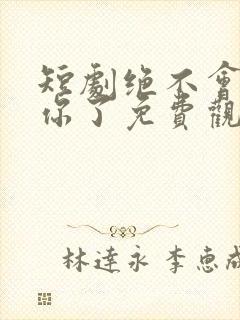 短劇绝不會
你了免費觀
林達永 李惠成